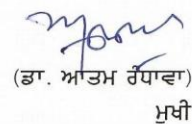 (ਡਾ. ਆਤਮ ਰੰਧਾਵਾ)
ਮੁਖੀ